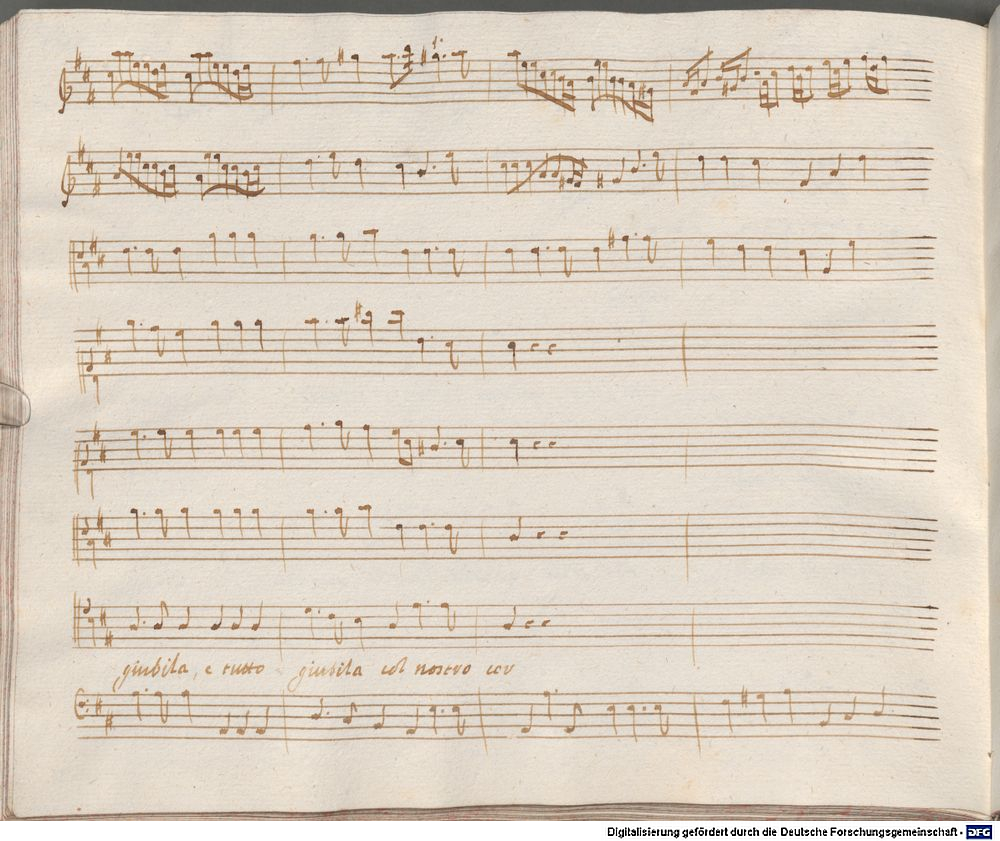 giubila, e tutto giubila col nostro cor
Digitalisierung gefördert durch die Deutsche Forschungsgemeinschaft - DFG